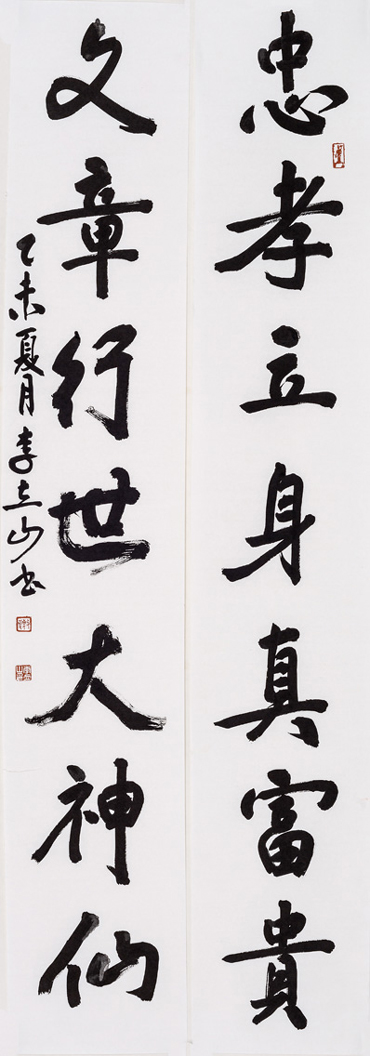 忠孝立身真富貴
文章行世大神仙
乙未夏月李立山书